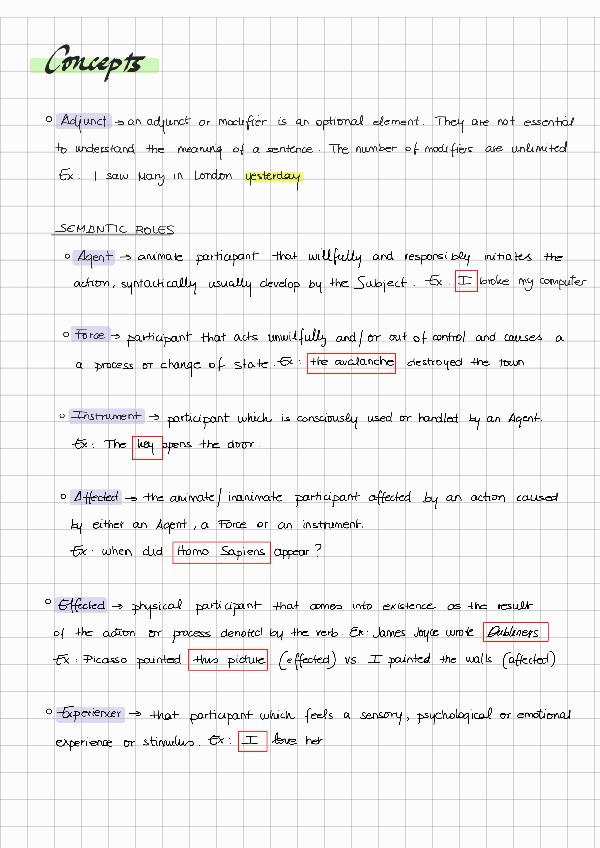 Concepts
° Adjunct → an adjunct or modifier is an optional element. They are not essential
to understand the meaning of a sentence. The number of modifiers are unlimited
Ex. I saw Mary in London yesterday
SEMANTIC ROLES
° Agent → animate participant that willfully and responsibly initiates the
action, syntactically usually develop by the Subject. Ex. I broke my computer
° Force → participant that acts unwilfully and/or out of control and causes a
a process or change of state. Ex: the avalanche destroyed the town
° Instrument → participant which is consciously used or handled by an Agent.
Ex: The key opens the door.
° Affected → the animate/inanimate participant affected by an action caused
by either an Agent, a Force or an instrument.
Ex: when did Homo Sapiens appear?
° Effected → physical participant that comes into existence as the result
of the action or process denoted by the verb. Ex: James Joyce wrote Dubliners
Ex: Picasso painted this picture (effected) vs. I painted the walls (affected)
° Experiencer → that participant which feels a sensory, psychological or emotional
experience or stimulus. Ex: I love her